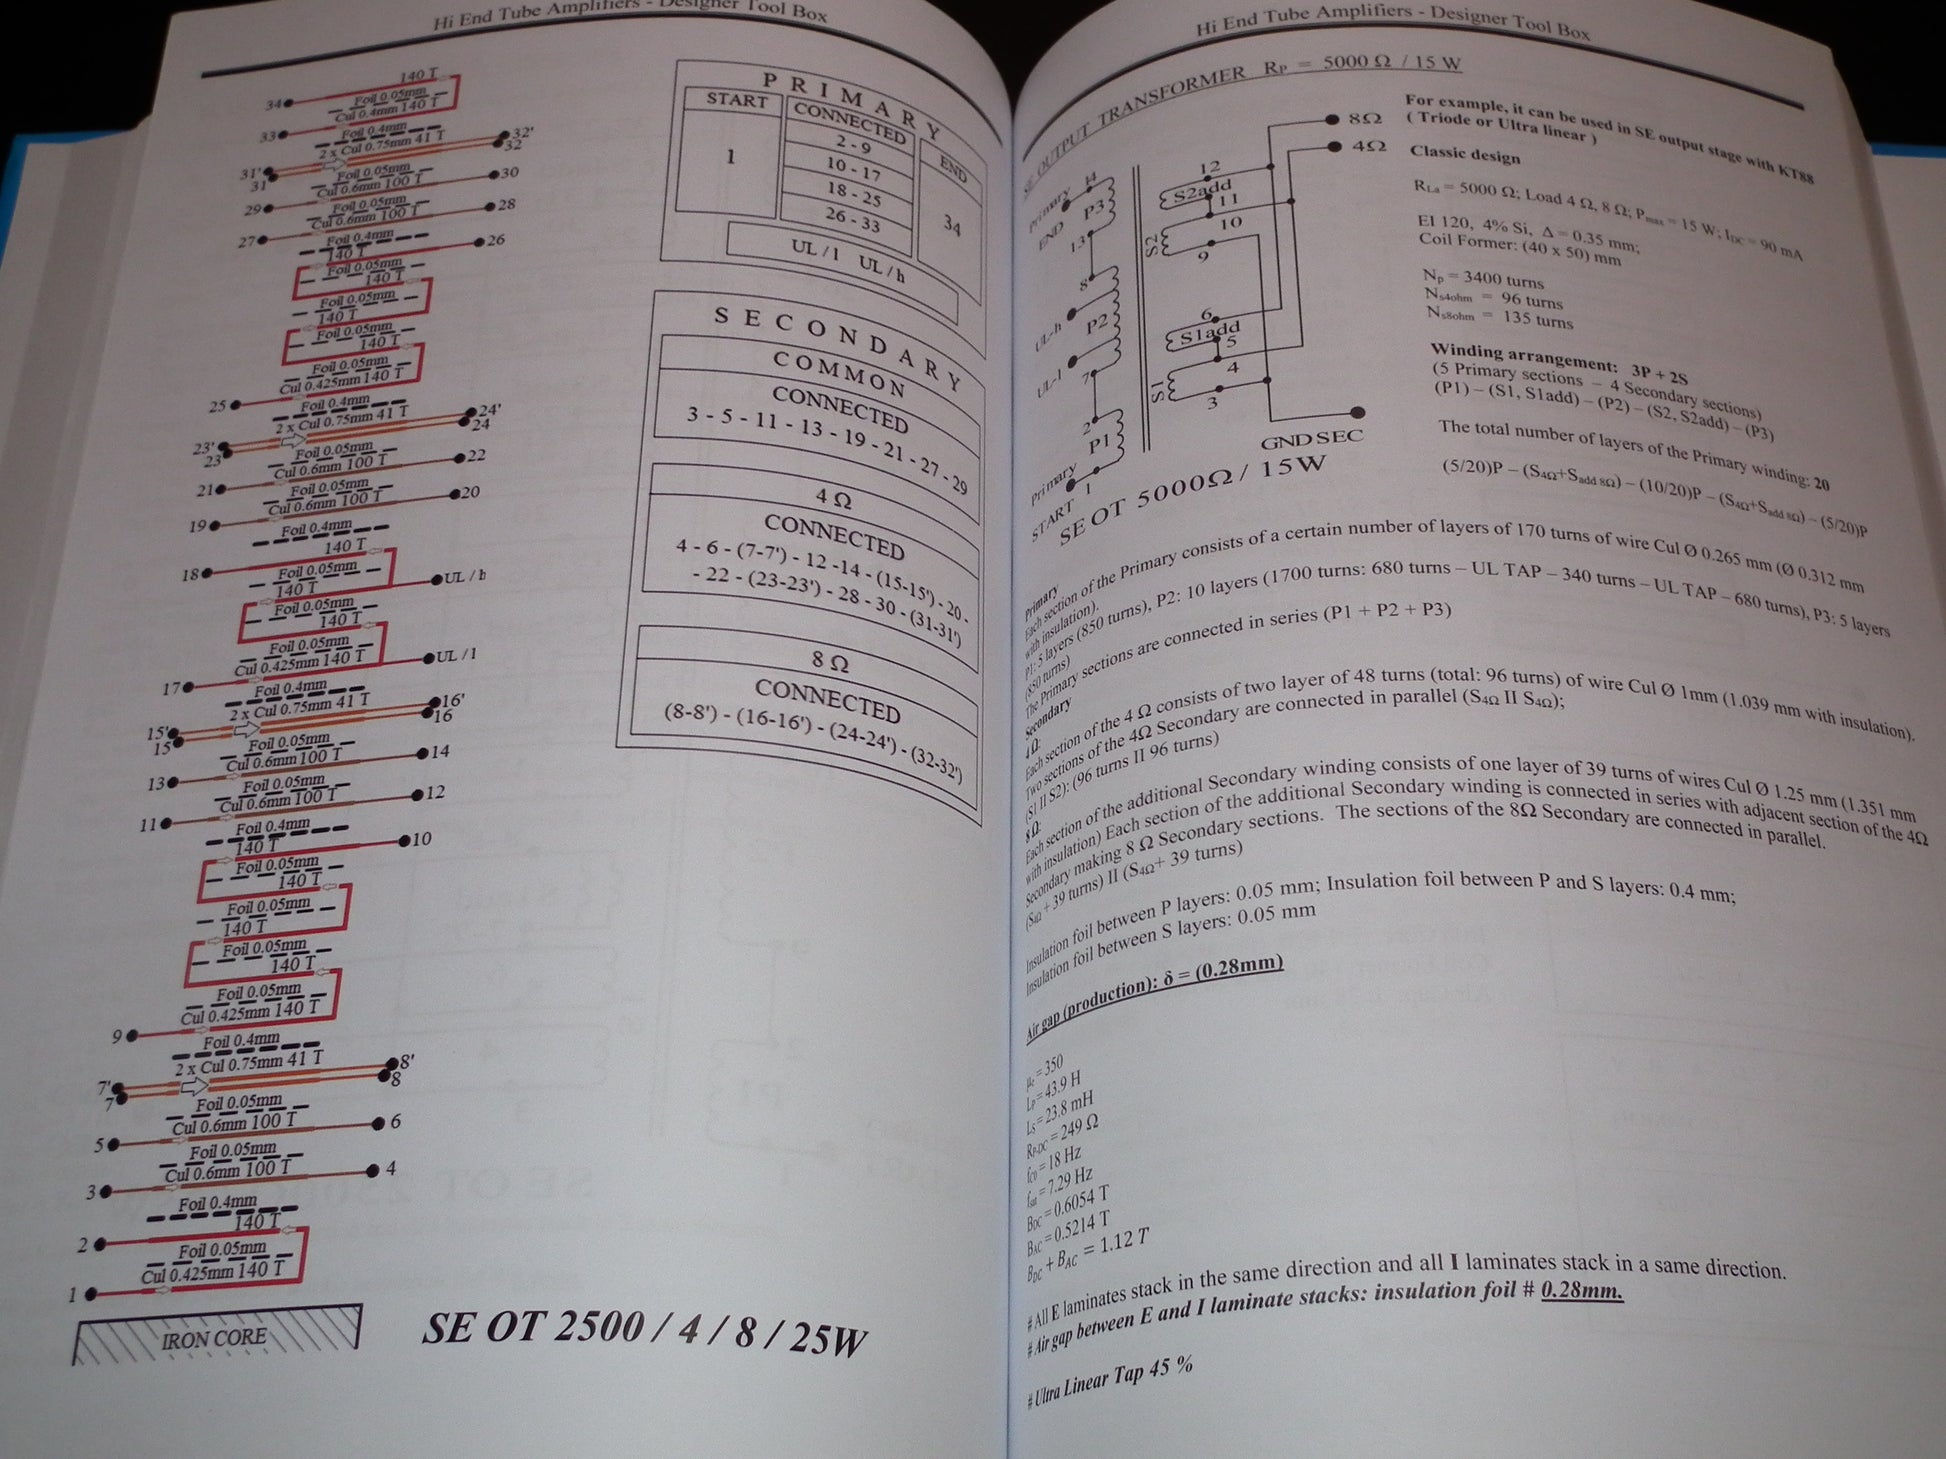 Hi End Tube Amplifiers - Designer Tool Box
140 T
34
Foil 0.05mm
Cul 0.4mm 140 T
33
Foil 0.4mm
32'
2 x Cul 0.75mm 41 T
32
31'
31
Foil 0.05mm
30
Cul 0.6mm 100 T
29
Foil 0.05mm
28
Cul 0.6mm 100 T
27
Foil 0.4mm
26
140 T
Foil 0.05mm
140 T
Foil 0.05mm
140 T
Foil 0.05mm
140 T
Foil 0.05mm
Cul 0.425mm 140 T
25
Foil 0.4mm
24'
2 x Cul 0.75mm 41 T
24
23'
23
Foil 0.05mm
22
Cul 0.6mm 100 T
21
Foil 0.05mm
20
Cul 0.6mm 100 T
19
Foil 0.4mm
140 T
18
Foil 0.05mm
UL / h
140 T
Foil 0.05mm
140 T
Foil 0.05mm
UL / l
Cul 0.425mm 140 T
17
Foil 0.4mm
16'
2 x Cul 0.75mm 41 T
16
15'
15
Foil 0.05mm
14
Cul 0.6mm 100 T
13
Foil 0.05mm
12
Cul 0.6mm 100 T
11
Foil 0.4mm
10
140 T
Foil 0.05mm
140 T
Foil 0.05mm
140 T
Foil 0.05mm
140 T
Foil 0.05mm
Cul 0.425mm 140 T
9
Foil 0.4mm
8'
2 x Cul 0.75mm 41 T
8
7'
7
Foil 0.05mm
6
Cul 0.6mm 100 T
5
Foil 0.05mm
4
Cul 0.6mm 100 T
3
Foil 0.4mm
140 T
2
Foil 0.05mm
Cul 0.425mm 140 T
1
IRON CORE
SE OT 2500 / 4 / 8 / 25W
PRIMARY
START
CONNECTED
END
1
2 - 9
10 - 17
18 - 25
26 - 33
34
UL / l UL / h
SECONDARY
COMMON
CONNECTED
3 - 5 - 11 - 13 - 19 - 21 - 27 - 29
4 Ω
CONNECTED
4 - 6 - (7-7') - 12 -14 - (15-15') - 20 -
- 22 - (23-23') - 28 - 30 - (31-31')
8 Ω
CONNECTED
(8-8') - (16-16') - (24-24') - (32-32')
Hi End Tube Amplifiers - Designer Tool Box
SE OUTPUT TRANSFORMER RP = 5000 Ω / 15 W
8Ω
4Ω
12
S2add
11
10
S2
9
6
S1add
5
4
S1
3
GND SEC
Primary
END
P3
13
8
UL-h
P2
UL-l
7
2
P1
Primary
START
1
SE OT 5000Ω / 15W
For example, it can be used in SE output stage with KT88
( Triode or Ultra linear )
Classic design
RLa = 5000 Ω; Load 4 Ω, 8 Ω; Pmax = 15 W; IDC = 90 mA
EI 120, 4% Si, Δ = 0.35 mm;
Coil Former: (40 x 50) mm
Np = 3400 turns
Ns4ohm = 96 turns
Ns8ohm = 135 turns
Winding arrangement: 3P + 2S
(5 Primary sections – 4 Secondary sections)
(P1) – (S1, S1add) – (P2) – (S2, S2add) – (P3)
The total number of layers of the Primary winding: 20
(5/20)P – (S4Ω+Sadd 8Ω) – (10/20)P – (S4Ω+Sadd 8Ω) – (5/20)P
Primary
Each section of the Primary consists of a certain number of layers of 170 turns of wire Cul Ø 0.265 mm (Ø 0.312 mm
with insulation).
P1: 5 layers (850 turns), P2: 10 layers (1700 turns: 680 turns – UL TAP – 340 turns – UL TAP – 680 turns), P3: 5 layers
(850 turns)
The Primary sections are connected in series (P1 + P2 + P3)
Secondary
4 Ω:
Each section of the 4 Ω consists of two layer of 48 turns (total: 96 turns) of wire Cul Ø 1mm (1.039 mm with insulation).
Two sections of the 4Ω Secondary are connected in parallel (S4Ω II S4Ω);
(S1 II S2): (96 turns II 96 turns)
8 Ω:
Each section of the additional Secondary winding consists of one layer of 39 turns of wires Cul Ø 1.25 mm (1.351 mm
with insulation) Each section of the additional Secondary winding is connected in series with adjacent section of the 4Ω
Secondary making 8 Ω Secondary sections. The sections of the 8Ω Secondary are connected in parallel.
(S4Ω + 39 turns) II (S4Ω+ 39 turns)
Insulation foil between P layers: 0.05 mm; Insulation foil between P and S layers: 0.4 mm;
Insulation foil between S layers: 0.05 mm
Air gap (production): δ = (0.28mm)
= 350
LP = 43.9 H
LS = 23.8 mH
RP-DC = 249 Ω
= 18 Hz
fsat = 7.29 Hz
BDC = 0.6054 T
BAC = 0.5214 T
BDC + BAC = 1.12 T
# All E laminates stack in the same direction and all I laminates stack in a same direction.
# Air gap between E and I laminate stacks: insulation foil # 0.28mm.
# Ultra Linear Tap 45 %